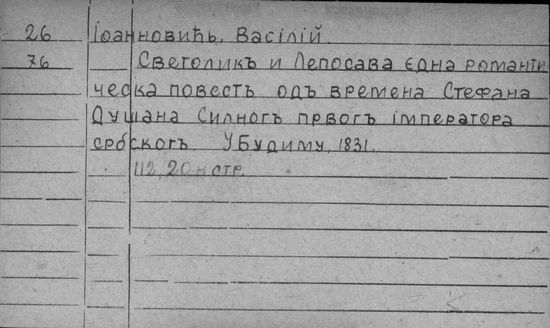 26 Іоанновићь, Василій
76 Светоликъ и Лепосава єдна романти
ческа повесть одъ времена Стефана
Душана Силногъ првогъ імператора
србскогъ. У Будиму, 1831.
112, 20 н стр.